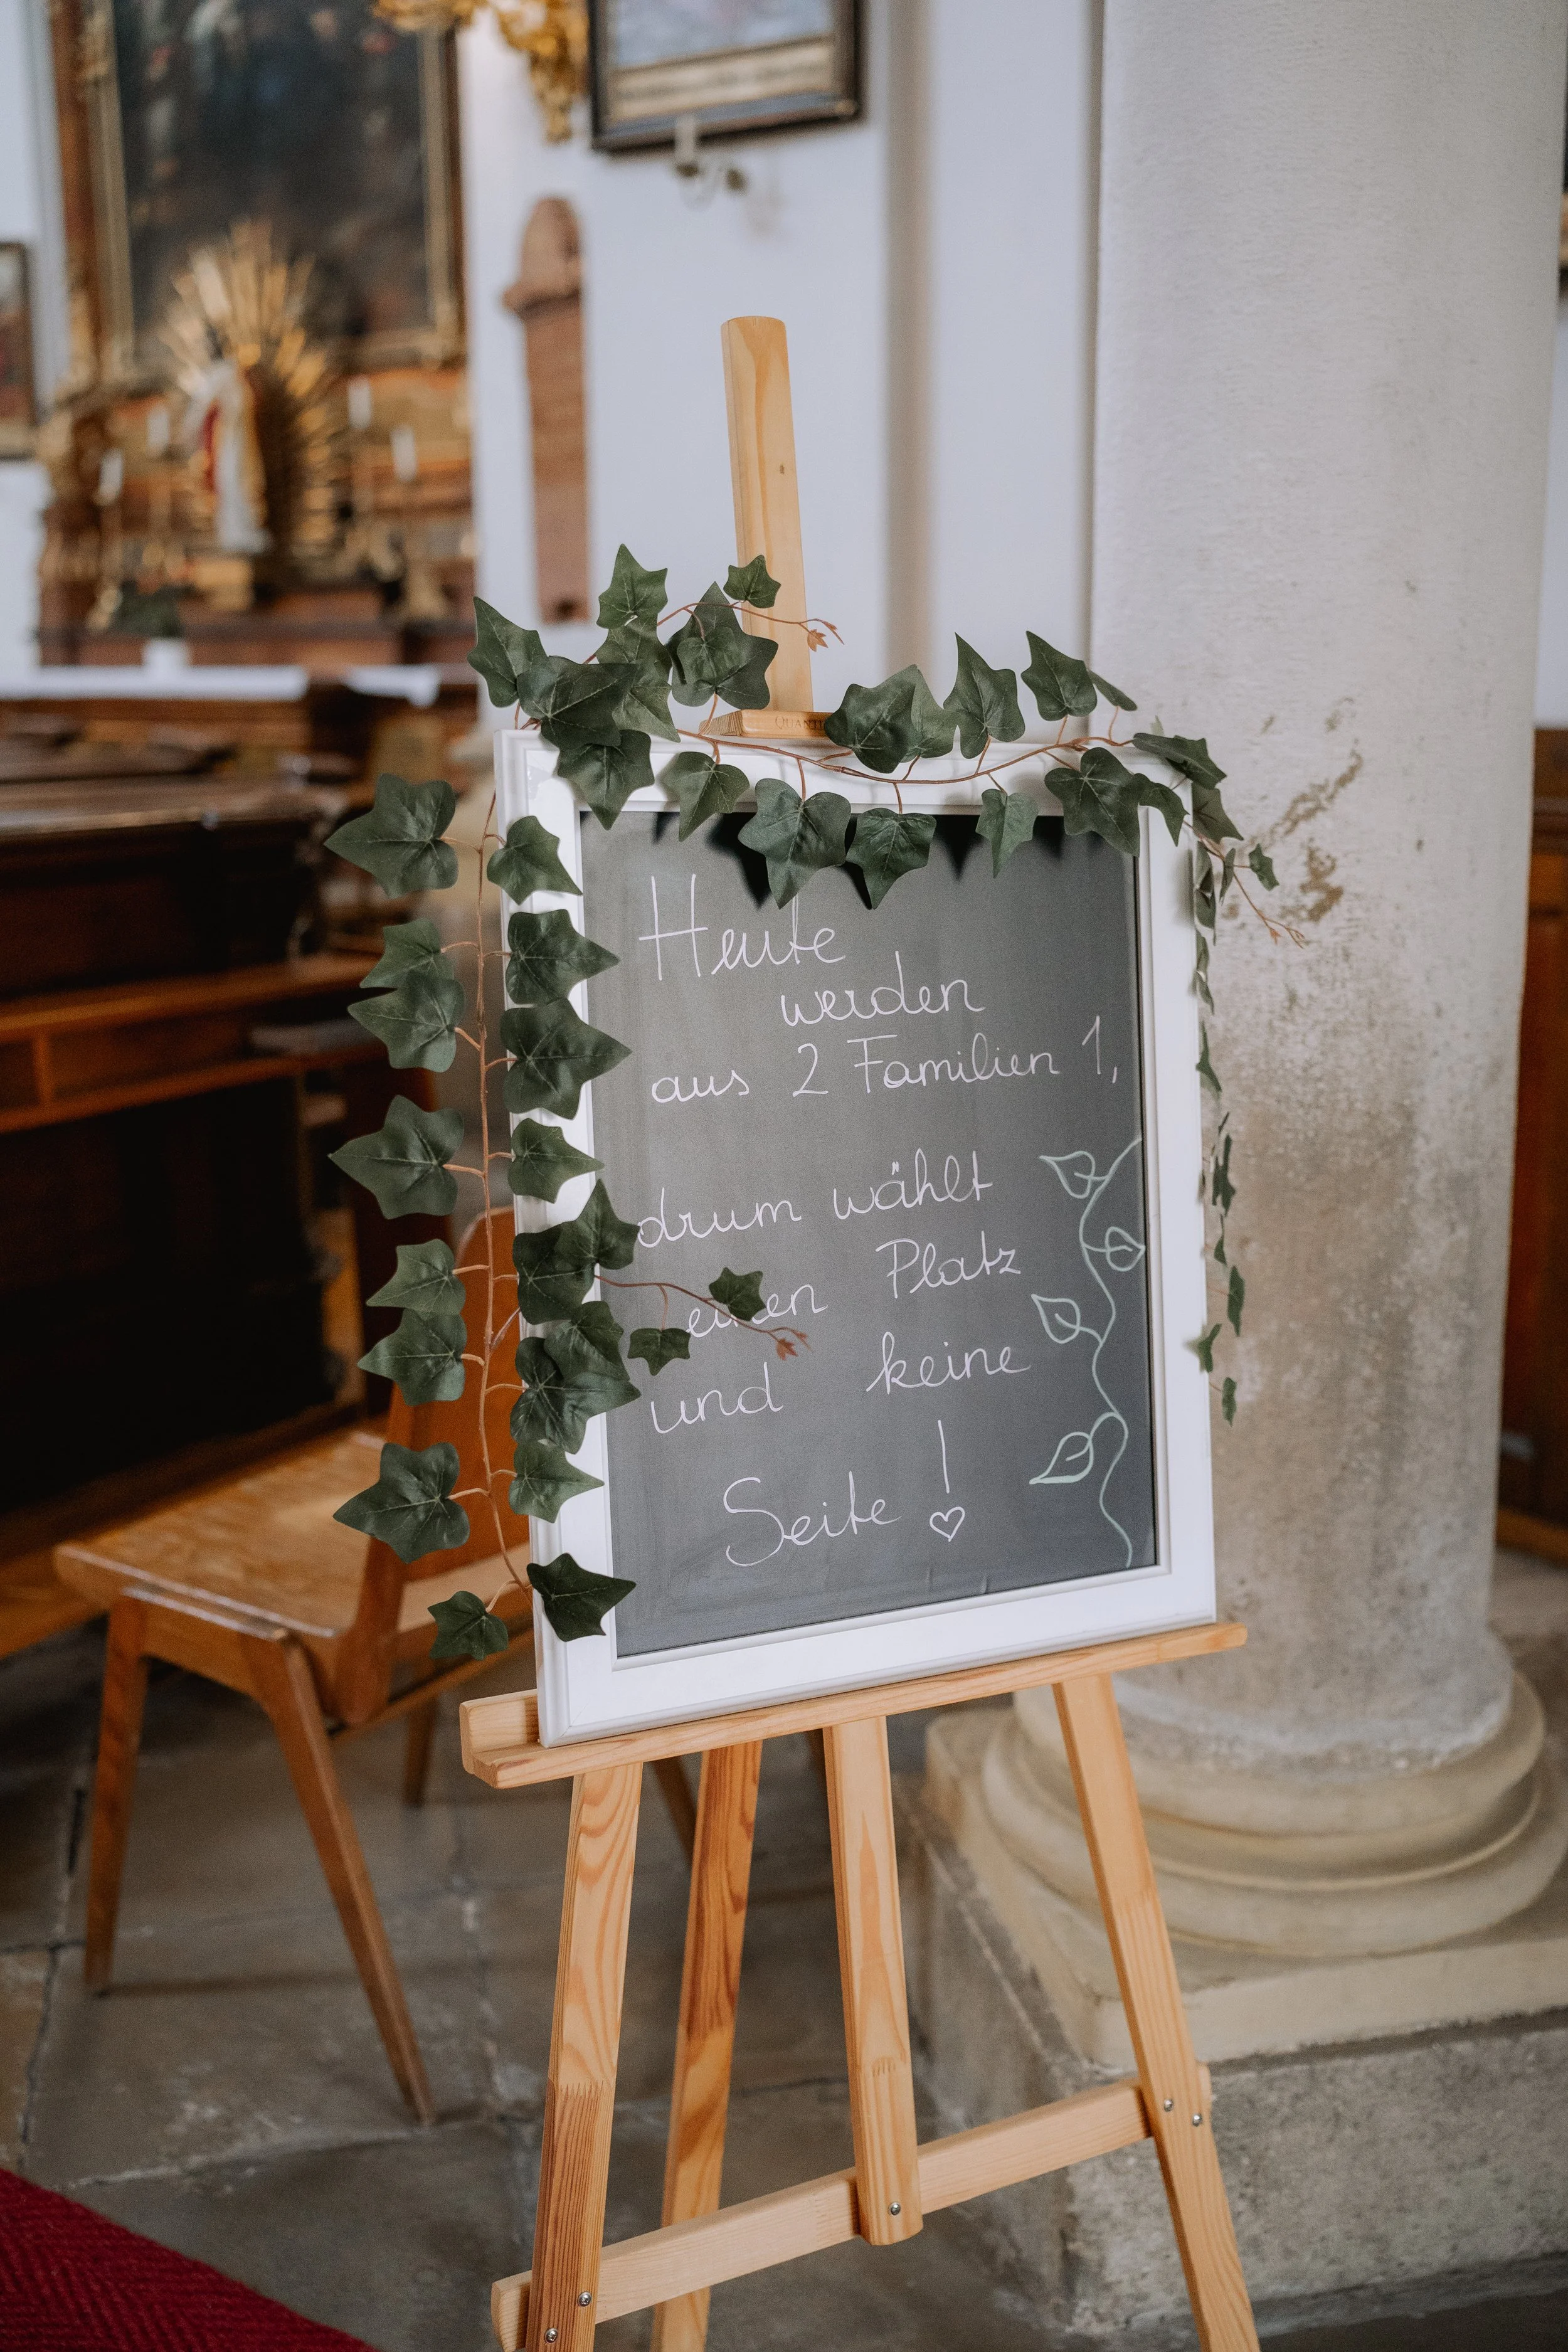 Heute
werden
aus 2 Familien 1,
drum wählt
einen Platz
und keine
Seite!